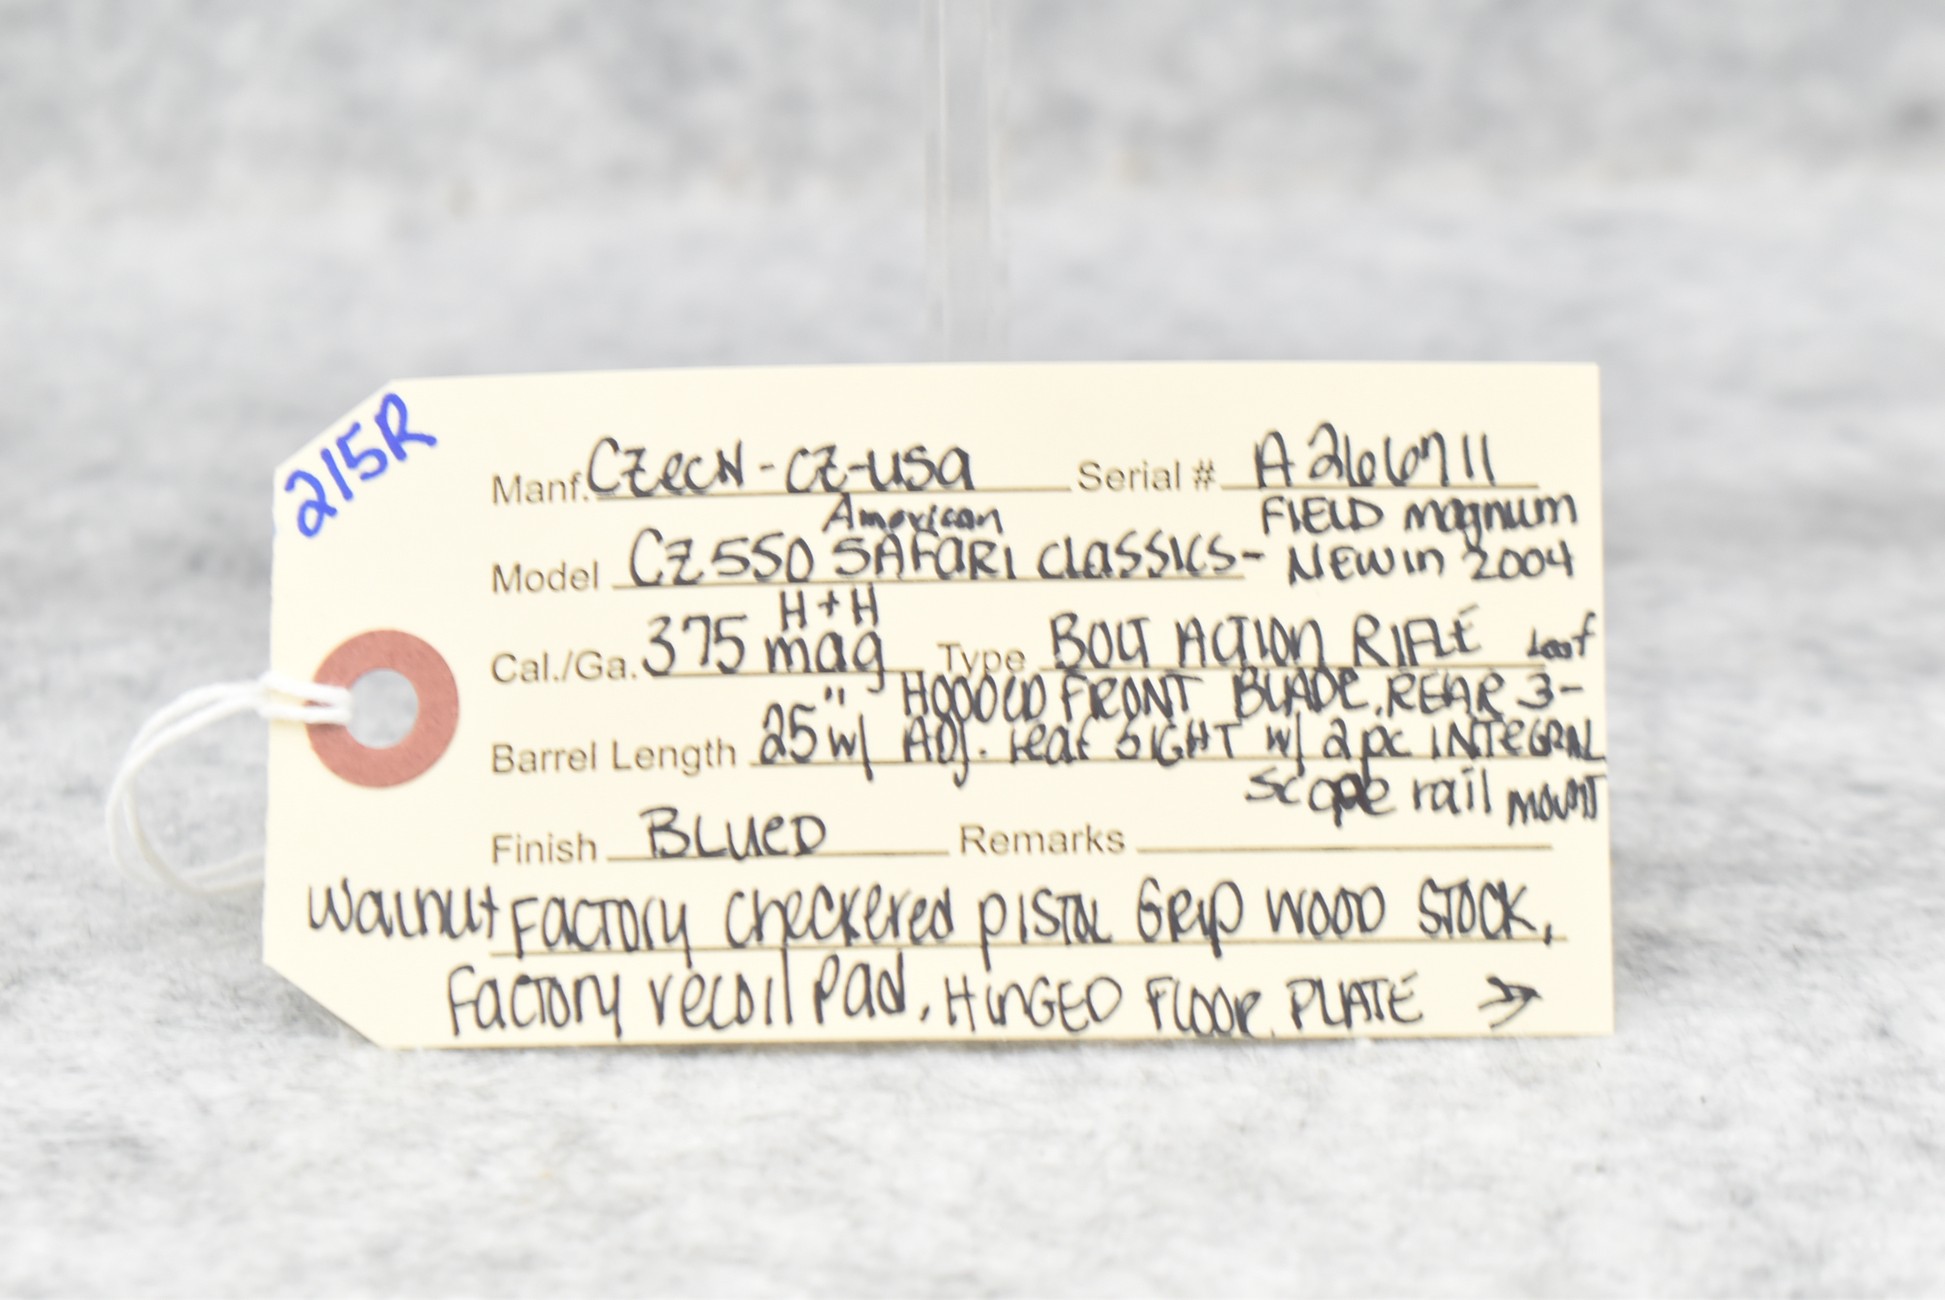 215R
Manf. Czech - CZ-USA Serial # A266711
American FIELD magnum
Model CZ 550 SAFARI Classics - NEW in 2004
H+H
Cal./Ga. 375 mag Type BOLT ACTION RIFLE Leaf
" HOODED FRONT BLADE, REAR 3-
Barrel Length 25 w/ ADJ. Leaf SIGHT w/ 2 pc INTEGRAL
Scope rail mount
Finish BLUED Remarks
Walnut FACTORY Checkered PISTOL GRIP WOOD STOCK,
Factory recoil Pad, HINGED FLOOR PLATE →